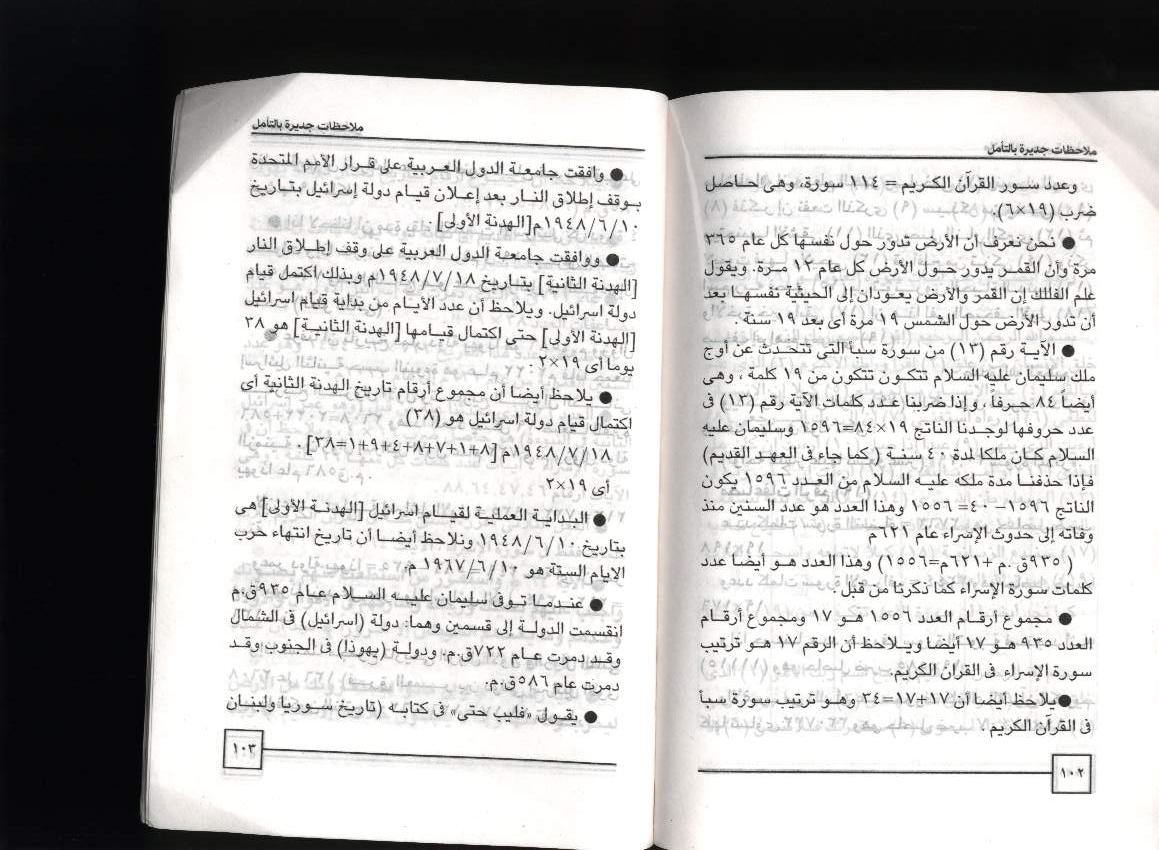 ملاحظات جديرة بالتأمل
وعدد سور القرآن الكريم = ١١٤ سورة، وهى حاصل
ضرب (١٩×٦).
● نحن نعرف أن الأرض تدور حول نفسها كل عام ٣٦٥
مرة وأن القمر يدور حول الأرض كل عام ١٢ مرة. ويقول
علم الفلك إن القمر والأرض يعودان إلى الحيثية نفسها بعد
أن تدور الأرض حول الشمس ١٩ مرة أى بعد ١٩ سنة .
● الآية رقم (١٣) من سورة سبأ التى تتحدث عن أوج
ملك سليمان عليه السلام تتكون تتكون من ١٩ كلمة ، وهى
أيضاً ٨٤ حرفاً ، وإذا ضربنا عدد كلمات الآية رقم (١٣) فى
عدد حروفها لوجدنا الناتج ١٩×٨٤=١٥٩٦ وسليمان عليه
السلام كان ملكا لمدة ٤٠ سنة ( كما جاء فى العهد القديم)
فإذا حذفنا مدة ملكه عليه السلام من العدد ١٥٩٦ يكون
الناتج ١٥٩٦–٤٠= ١٥٥٦ وهذا العدد هو عدد السنين منذ
وفاته إلى حدوث الإسراء عام ٦٢١م
( ٩٣٥ق.م +٦٢١م=١٥٥٦) وهذا العدد هو أيضا عدد
كلمات سورة الإسراء كما ذكرنا من قبل .
● مجموع أرقام العدد ١٥٥٦ هو ١٧ ومجموع أرقام
العدد ٩٣٥ هو ١٧ أيضا ويلاحظ أن الرقم ١٧ هو ترتيب
سورة الإسراء فى القرآن الكريم.
● يلاحظ أيضا أن ١٧+١٧=٣٤ وهو ترتيب سورة سبأ
فى القرآن الكريم .
١٠٢
ملاحظات جديرة بالتأمل
● وافقت جامعة الدول العربية على قرار الأمم المتحدة
بوقف إطلاق النار بعد إعلان قيام دولة إسرائيل بتاريخ
١٩٤٨/٦/١٠م [الهدنة الأولى] .
● ووافقت جامعة الدول العربية على وقف إطلاق النار
[الهدنة الثانية] بتاريخ ١٩٤٨/٧/١٨م وبذلك اكتمل قيام
دولة اسرائيل. ويلاحظ أن عدد الأيام من بداية قيام اسرائيل
[الهدنة الأولى] حتى اكتمال قيامها [الهدنة الثانية] هو ٣٨
يوما أى ١٩×٢ .
● يلاحظ أيضا أن مجموع أرقام تاريخ الهدنة الثانية أى
اكتمال قيام دولة اسرائيل هو (٣٨)
١٩٤٨/٧/١٨م [٨+١+٧+٨+٤+٩+١=٣٨] .
أى ١٩×٢
● البداية العملية لقيام اسرائيل [الهدنة الأولى] هى
بتاريخ ١٩٤٨/٦/١٠ ونلاحظ أيضا أن تاريخ انتهاء حرب
الايام الستة هو ١٩٦٧/٦/١٠ م.
● عندما توفى سليمان عليه السلام عام ٩٣٥ق.م
انقسمت الدولة إلى قسمين وهما: دولة (اسرائيل) فى الشمال
وقد دمرت عام ٧٢٢ق.م. ودولة (يهوذا) فى الجنوب وقد
دمرت عام ٥٨٦ق.م.
● يقول «فليب حتى» فى كتابه (تاريخ سوريا ولبنان
١٠٣